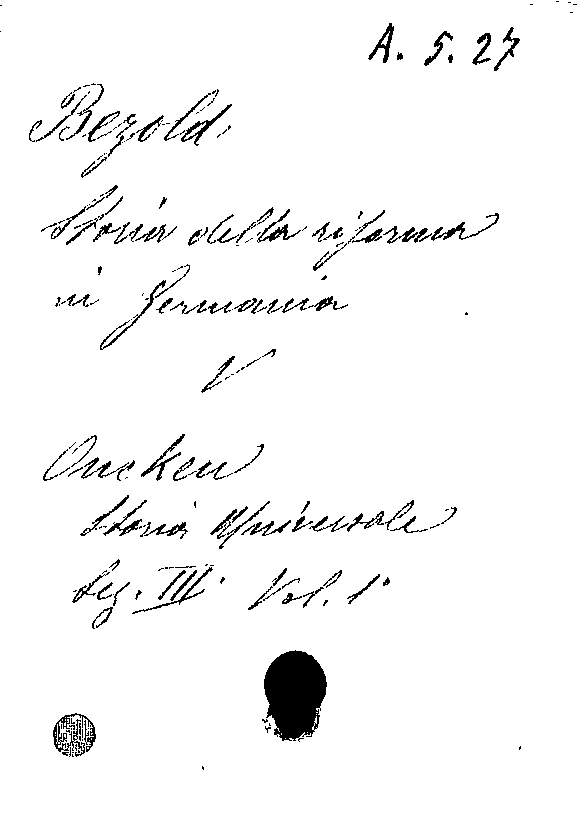 A. 5. 27
Bezold.
Storia della riforma
in Germania
V
Oncken
Storia Universale
Sez. III. Vol. 1°